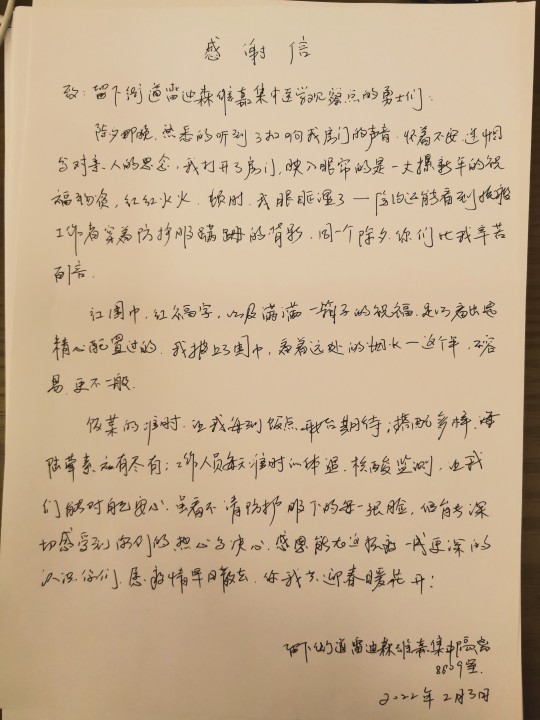 感谢信
致：留下街道雷迪森维嘉集中医学观察点的勇士们：
除夕那晚，熟悉的听到了扣响我房门的声音，怀着不安、迷惘
与对亲人的思念，我打开了房门，映入眼帘的是一大摞新年的祝
福物资，红红火火，顿时，我眼眶湿了——隐约还能看到
工作者穿着防护服蹒跚的背影，同一个除夕，你们比我辛苦
百倍。
红围巾，红福字，以及满满一箱子的祝福，足以看出是
精心配置过的，我披上了围巾，看着远处的烟火——这个年，不容
易，更不一般。
饭菜的准时，让我每到饭点，都有期待；搭配多样，海
陆荤素应有尽有；工作人员每天准时的体温、核酸监测，也我
们能对自己安心。虽看不清防护服下的每一张脸，但能深
切感受到你们的热心与决心，感恩能在这
认识你们，愿疫情早日散去，你我共迎春暖花开！
留下街道雷迪森维嘉集中隔离
8609室
2022年2月3日